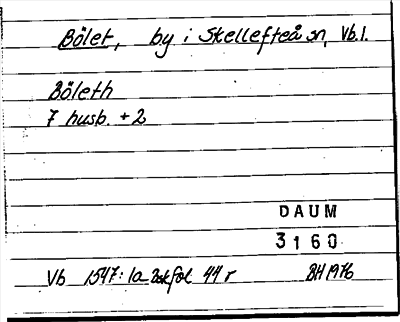 Bölet, by i Skellefteå sn, Vb.l.
Böleth
7 husb. + 2
DAUM
3160
Vb 1547: 1a 2skfol 44 r BH 1976